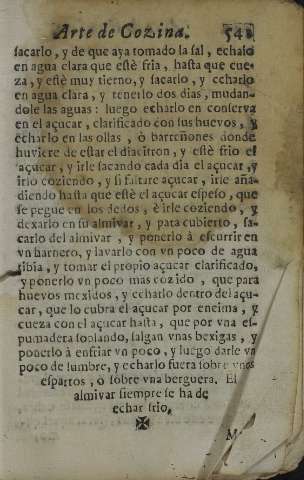 Arte de Cozina. 54
sacarlo, y de que aya tomado la sal, echalo
en agua clara que estè fria, hasta que cue-
za, y estè muy tierno, y sacarlo, y echarlo
en agua clara, y tenerlo dos dias, mudan-
dole las aguas: luego echarlo en conserva
en el açucar, clarificado con sus huevos, y
echarlo en las ollas, ò barreñones donde
huviere de estar el diacitron, y estè frio el
açucar, y irle sacando cada dia el açucar, y
irlo coziendo, y si faltare açucar, irle aña-
diendo hasta que estè el açucar espeso, que
se pegue en los dedos, è irle coziendo, y
dexarlo en su almivar, y para cubierto, sa-
carlo del almivar, y ponerlo à escurrir en
vn harnero, y lavarlo con vn poco de agua
tibia, y tomar el propio açucar clarificado,
y ponerlo vn poco mas cozido, que para
huevos mexidos, y echarlo dentro del açu-
car, que lo cubra el açucar por encima, y
cueza con el açucar hasta, que por vna es-
pumadera soplando, salgan vnas bexigas, y
ponerlo à enfriar vn poco, y luego darle vn
poco de lumbre, y echarlo fuera sobre vnos
espartos, o sobre vna berguera. El
almivar siempre se ha de
echar frio.
M